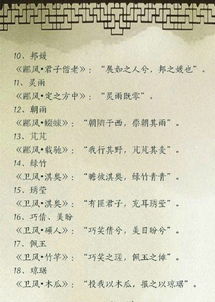 10、邦媛
《鄘风•君子偕老》:“展如之人兮,邦之媛也”。
11、灵雨
《鄘风•定之方中》:“灵雨既零”。
12、朝雨
《鄘风•蝃蝀》:“朝隮于西,崇朝其雨”。
13、芃芃
《鄘风•载驰》:“我行其野,芃芃其麦”。
14、绿竹
《卫风•淇奥》:“瞻彼淇奥,绿竹青青”。
15、琇莹
《卫风•淇奥》:“有匪君子,充耳琇莹”。
16、巧倩、美盼
《卫风•硕人》:“巧笑倩兮,美目盼兮”。
17、佩玉
《卫风•竹竿》:“巧笑之瑳,佩玉之傩”。
18、琼琚
《卫风•木瓜》:“投我以木瓜,报之以琼琚”。